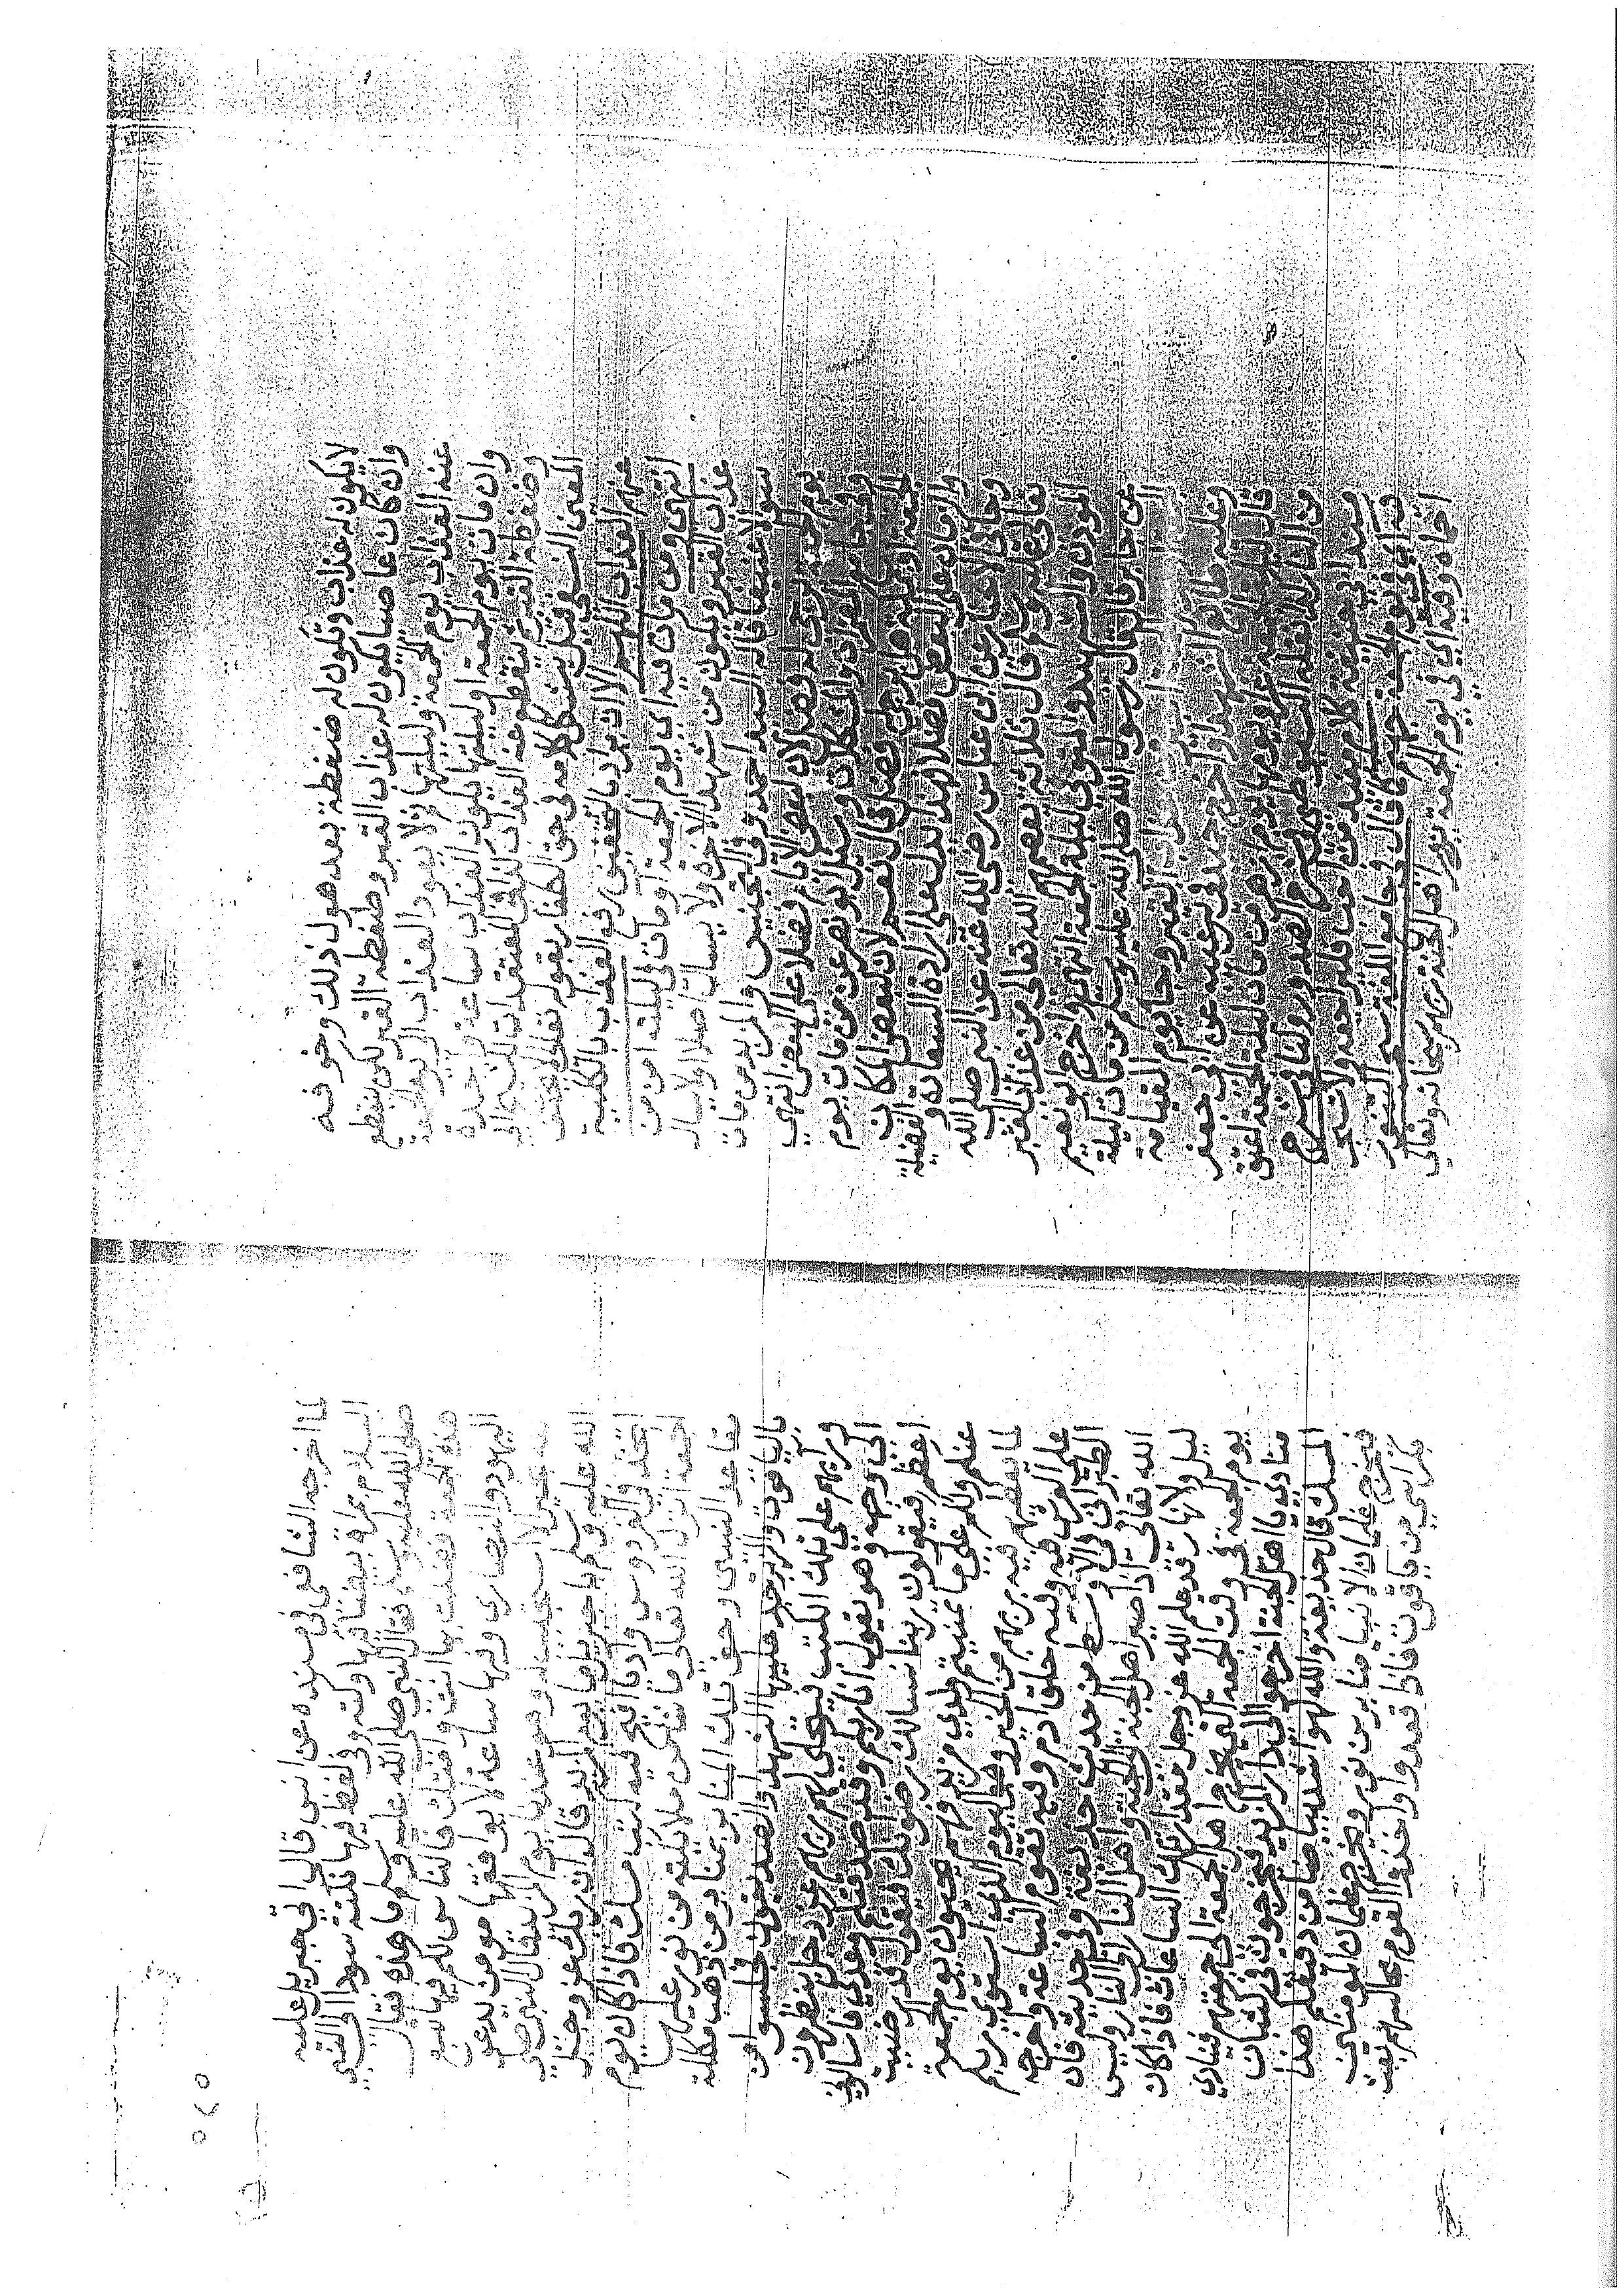 لا يكون له عذاب وتكون له ضغطة بعد هول ذلك وخوفه
وان كان عاصيا يكون له عذاب القبر وضغطة القبر لكن ينقطع
عنه العذاب يوم الجمعة وليلتها ثم لا يعود العذاب الى يوم
وان مات يوم الجمعة او ليلتها يكون العذاب ساعة واحدة
وضغطة القبر ثم ينقطع عنه العذاب كذا في المعتقدات للشيخ ابي
المعين النسفي وقيل يشكل كلامه في حق الكفار بقوله تعالى لا يخفف
عنهم العذاب اللهم الا ان يراد بالتخفيف رفع العذاب بالكلية
انتهى ومن مات فيه اي يوم الجمعة او مات في ليلته امن من
عذاب القبر ويكون من شهداء الاخرة ولا يسأل اصلا ولا يسأل
سؤالا عنيفا قاله السيد احمد وفي التجنيس والمزيد من مات
يوم الجمعة يرجى له فضل لان لبعض الايام فضلا على البعض انتهى
وفي جامع الفتاوى كلات وسئل ابو نصر عن من مات يوم
الجمعة او بمكة هل يرجى له فضل قال نعم لان لبعض المكان
والزمان على البعض فضلا فهذا يدل على ارادة السعادة والفضيلة
وجاء في الاخبار عن ابن عباس رضي الله عنه عن النبي صلى الله
تعالى عليه وسلم قال ثلاثة يعصمهم الله تعالى من عذاب القبر
المؤذن والشهيد والمتوفي ليلة الجمعة انتهى واخرج ابو نعيم
عن جابر قال قال رسول الله صلى الله عليه وسلم من مات ليلة
الجمعة او يوم الجمعة اجير من عذاب القبر وجاء يوم القيامة
وعليه طابع الشهداء واخرج حميد في ترغيبه عن ابي جعفر
قال ليلة الجمعة غراء ويومها يوم ازهر من مات ليلة الجمعة اعتق
من النار كذا نقله السيوطي في شرح الصدور ولنا في شرح
مسند ابي حنيفة كلام مفيد متعلق
فيه اي في يوم الجمعة كما قال في جامع المفتي
اخاه وفيه اي في يوم الجمعة يزور اهل الجنة ربهم سبحانه وتعالى
لما اخرجه الشافعي في مسنده عن انس قال اتى جبريل عليه
السلام بمراة بيضاء فيها وكتة وفي لفظ فيها نكتة سوداء الى النبي
صلى الله عليه وسلم فقال النبي صلى الله عليه وسلم ما هذه فقال
هذه الجمعة فضلت بها انت وامتك فالناس لكم فيها تبع
اليهود والنصارى وفيها ساعة لا يوافقها مومن يدعو
الله بخير الا استجيب له وهو عندنا يوم المزيد فقال النبي صلى
الله عليه وسلم يا جبريل ما يوم المزيد قال ان ربك عز وجل
اتخذ في الفردوس واديا افيح فيه كثيب مسك فاذا كان يوم
الجمعة انزل الله تعالى ما شاء من ملائكته من نور عليها
مقاعد النبيين وحف تلك المنابر بمنابر من ذهب مكللة
بالياقوت والزبرجد عليها الشهداء والصديقون فجلسوا من
ورائهم على تلك الكثب فيتجلى لهم ربهم عز وجل ينظرون
الى وجهه وهو يقول انا ربكم وقد صدقتكم وعدي فاسالوني
اعطكم فيقولون ربنا نسالك رضوانك فيقول قد رضيت
عنكم ولكم علي ما تمنيتم ولدي مزيد فهم يحبون يوم الجمعة
لما يعطيهم فيه ربهم من الخير وهو اليوم الذي استوى ربكم
على العرش فيه وفيه خلق ادم وفيه تقوم الساعة واخرجه
الطبراني في الاوسط من حديث حذيفة وفي حديثه فان
الله تعالى اذا صير اهل الجنة الى الجنة واهل النار الى النار وليس
ليل ولا نهار قد علم الله عز وجل مقدار تلك الساعات فاذا كان
يوم الجمعة في وقت الجمعة التي يخرج اهل الجمعة الى جمعتهم فينادي
مناد يا اهل الجنة اخرجوا الى دار المزيد فيخرجون في كثبان
المسك قال حذيفة والله لهو اشد بياضا من دقيقكم هذا
فيخرج غلمان الانبيا بمنابر من نور ويخرج غلمان المومنين
بكراسي من ياقوت فاذا قعدوا واخذ القوم مجالسهم بعث